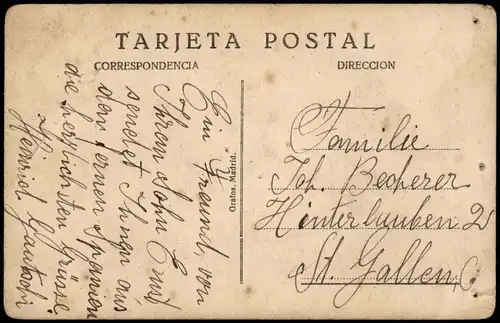 TARJETA POSTAL
CORRESPONDENCIA
DIRECCION
Ein Freund von
Ihrem Sohn Emil
sendet Ihnen aus
dem fernen Spanien
die herzlichsten Grüsse
Heinrich
Grafos. Madrid.
Familie
Joh. Becherer
Hinterlauben 2
St. Gallen